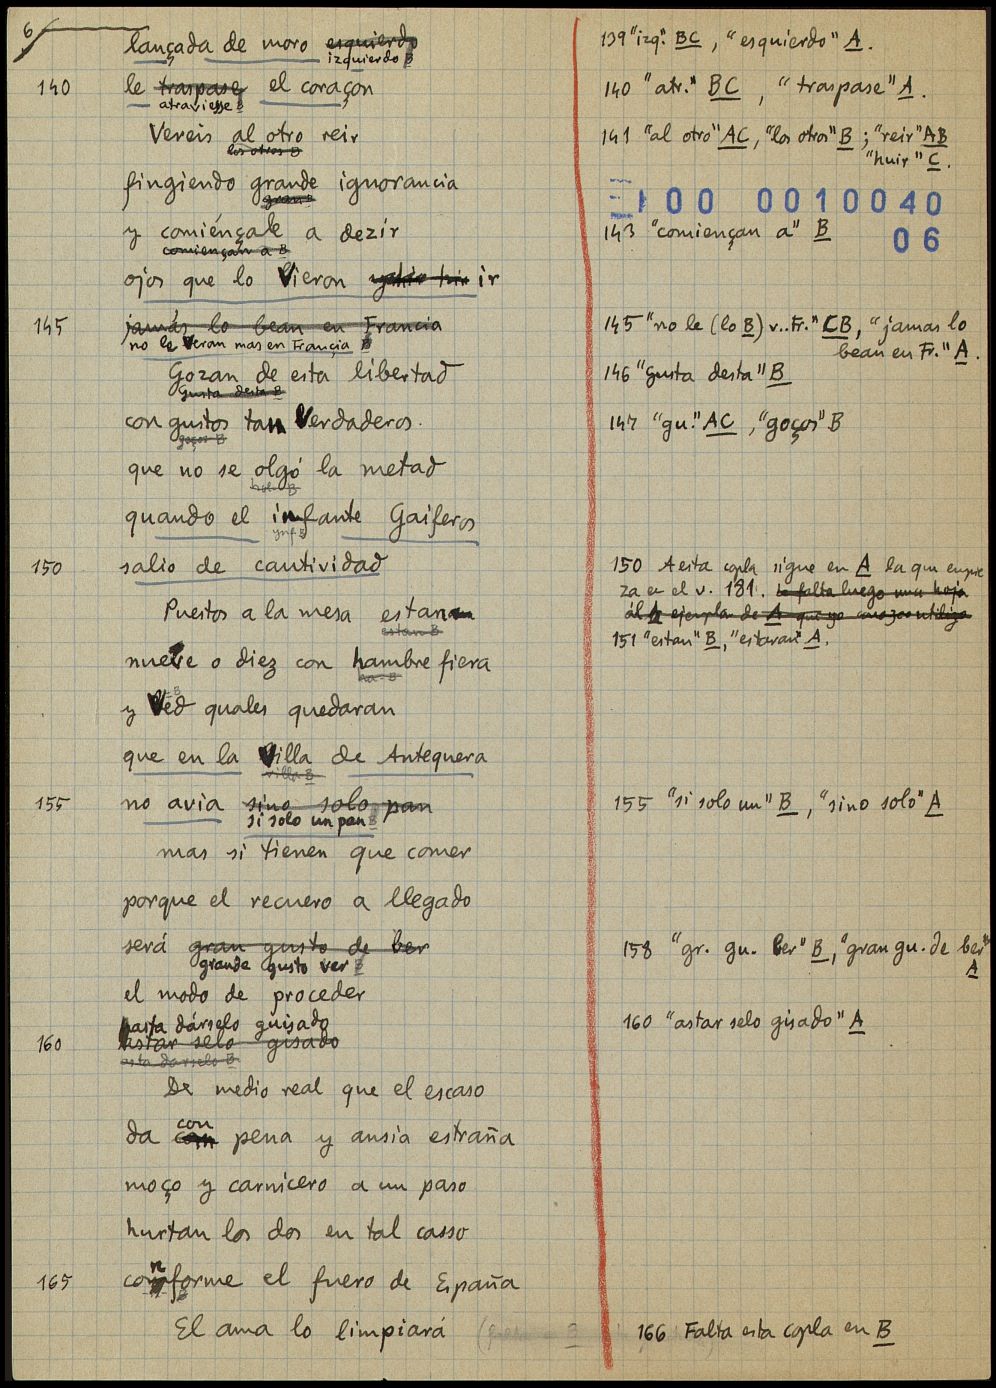 6
lançada de moro esquierdo
izquierdo B
140 le traspase el coraçon
atraviesse B
Vereis al otro reir
los otros B
fingiendo grande ignorancia
gran B
y comiénçale a dezir
comiençan a B
ojos que lo Vieron ir
145 jamás lo bean en Francia
no le Veran mas en Francia B
Gozan de esta libertad
Gusta desta B
con gustos tan Verdaderos.
goços B
que no se olgó la metad
hol. B
quando el infante Gaiferos
ynf B
150 salio de cautividad
Puestos a la mesa estan
estan B
nueve o diez con hambre fiera
ha- B
y Ved quales quedaran
que en la Villa de Antequera
villa B
155 no avia sino solo pan
si solo un pan B
mas si tienen que comer
porque el recuero a llegado
será gran gusto de ber
grande gusto ver B
el modo de proceder
hasta dárselo guisado
160 astar selo gisado
asta darselo B
De medio real que el escaso
da con pena y ansia estraña
moço y carnicero a un paso
hurtan los dos en tal casso
165 conforme el fuero de España
El ama lo limpiará
139 "izq." BC, "esquierdo" A.
140 "atr." BC, "traspase" A.
141 "al otro" AC, "los otros" B; "reir" AB
"huir" C.
100 0010040
06
143 "comiençan a" B
145 "no le (lo B) v..Fr." CB, "jamas lo
bean en Fr." A.
146 "Gusta desta" B
147 "gu." AC, "goços" B
150 A esta copla sigue en A la que empie
za en el v. 181. le falta luego una hoja
al ejemplar de A que yo conozco utilizo
151 "estan" B, "estaran" A.
155 "si solo un" B, "sino solo" A
158 "gr. gu. ber" B, "gran gu. de ber"
A
160 "astar selo gisado" A
166 Falta esta copla en B